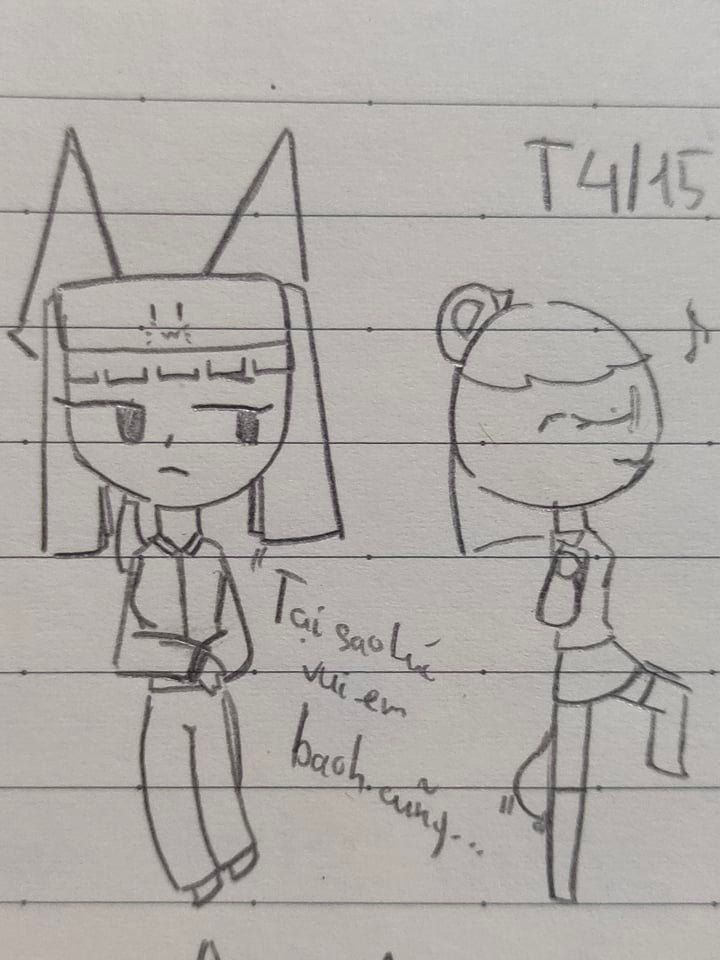 T4/15
Tại sao lúc
vui em
baoh cũng...